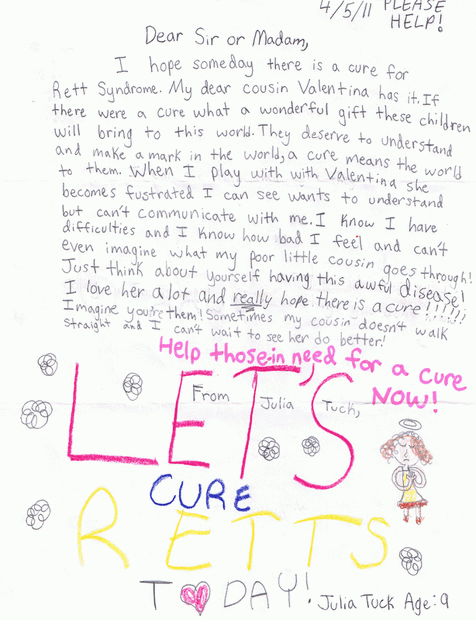 4/5/11 PLEASE
HELP!
Dear Sir or Madam,
I hope someday there is a cure for
Rett Syndrome. My dear cousin Valentina has it. If
there were a cure what a wonderful gift these children
will bring to this world. They deserve to understand
and make a mark in the world, a cure means the world
to them. When I play with with Valentina she
becomes fustrated I can see wants to understand
but can't communicate with me. I know I have
difficulties and I know how bad I feel and can't
even imagine what my poor little cousin goes through!
Just think about yourself having this awful disease!
I love her a lot and really hope there is a cure!!!!!!
Imagine you're them! Sometimes my cousin doesn't walk
straight and I can't wait to see her do better!
Help those in need for a cure
NOW!
From Julia Tuch,
LET'S
CURE
RETTS
TODAY!
Julia Tuck Age: 9